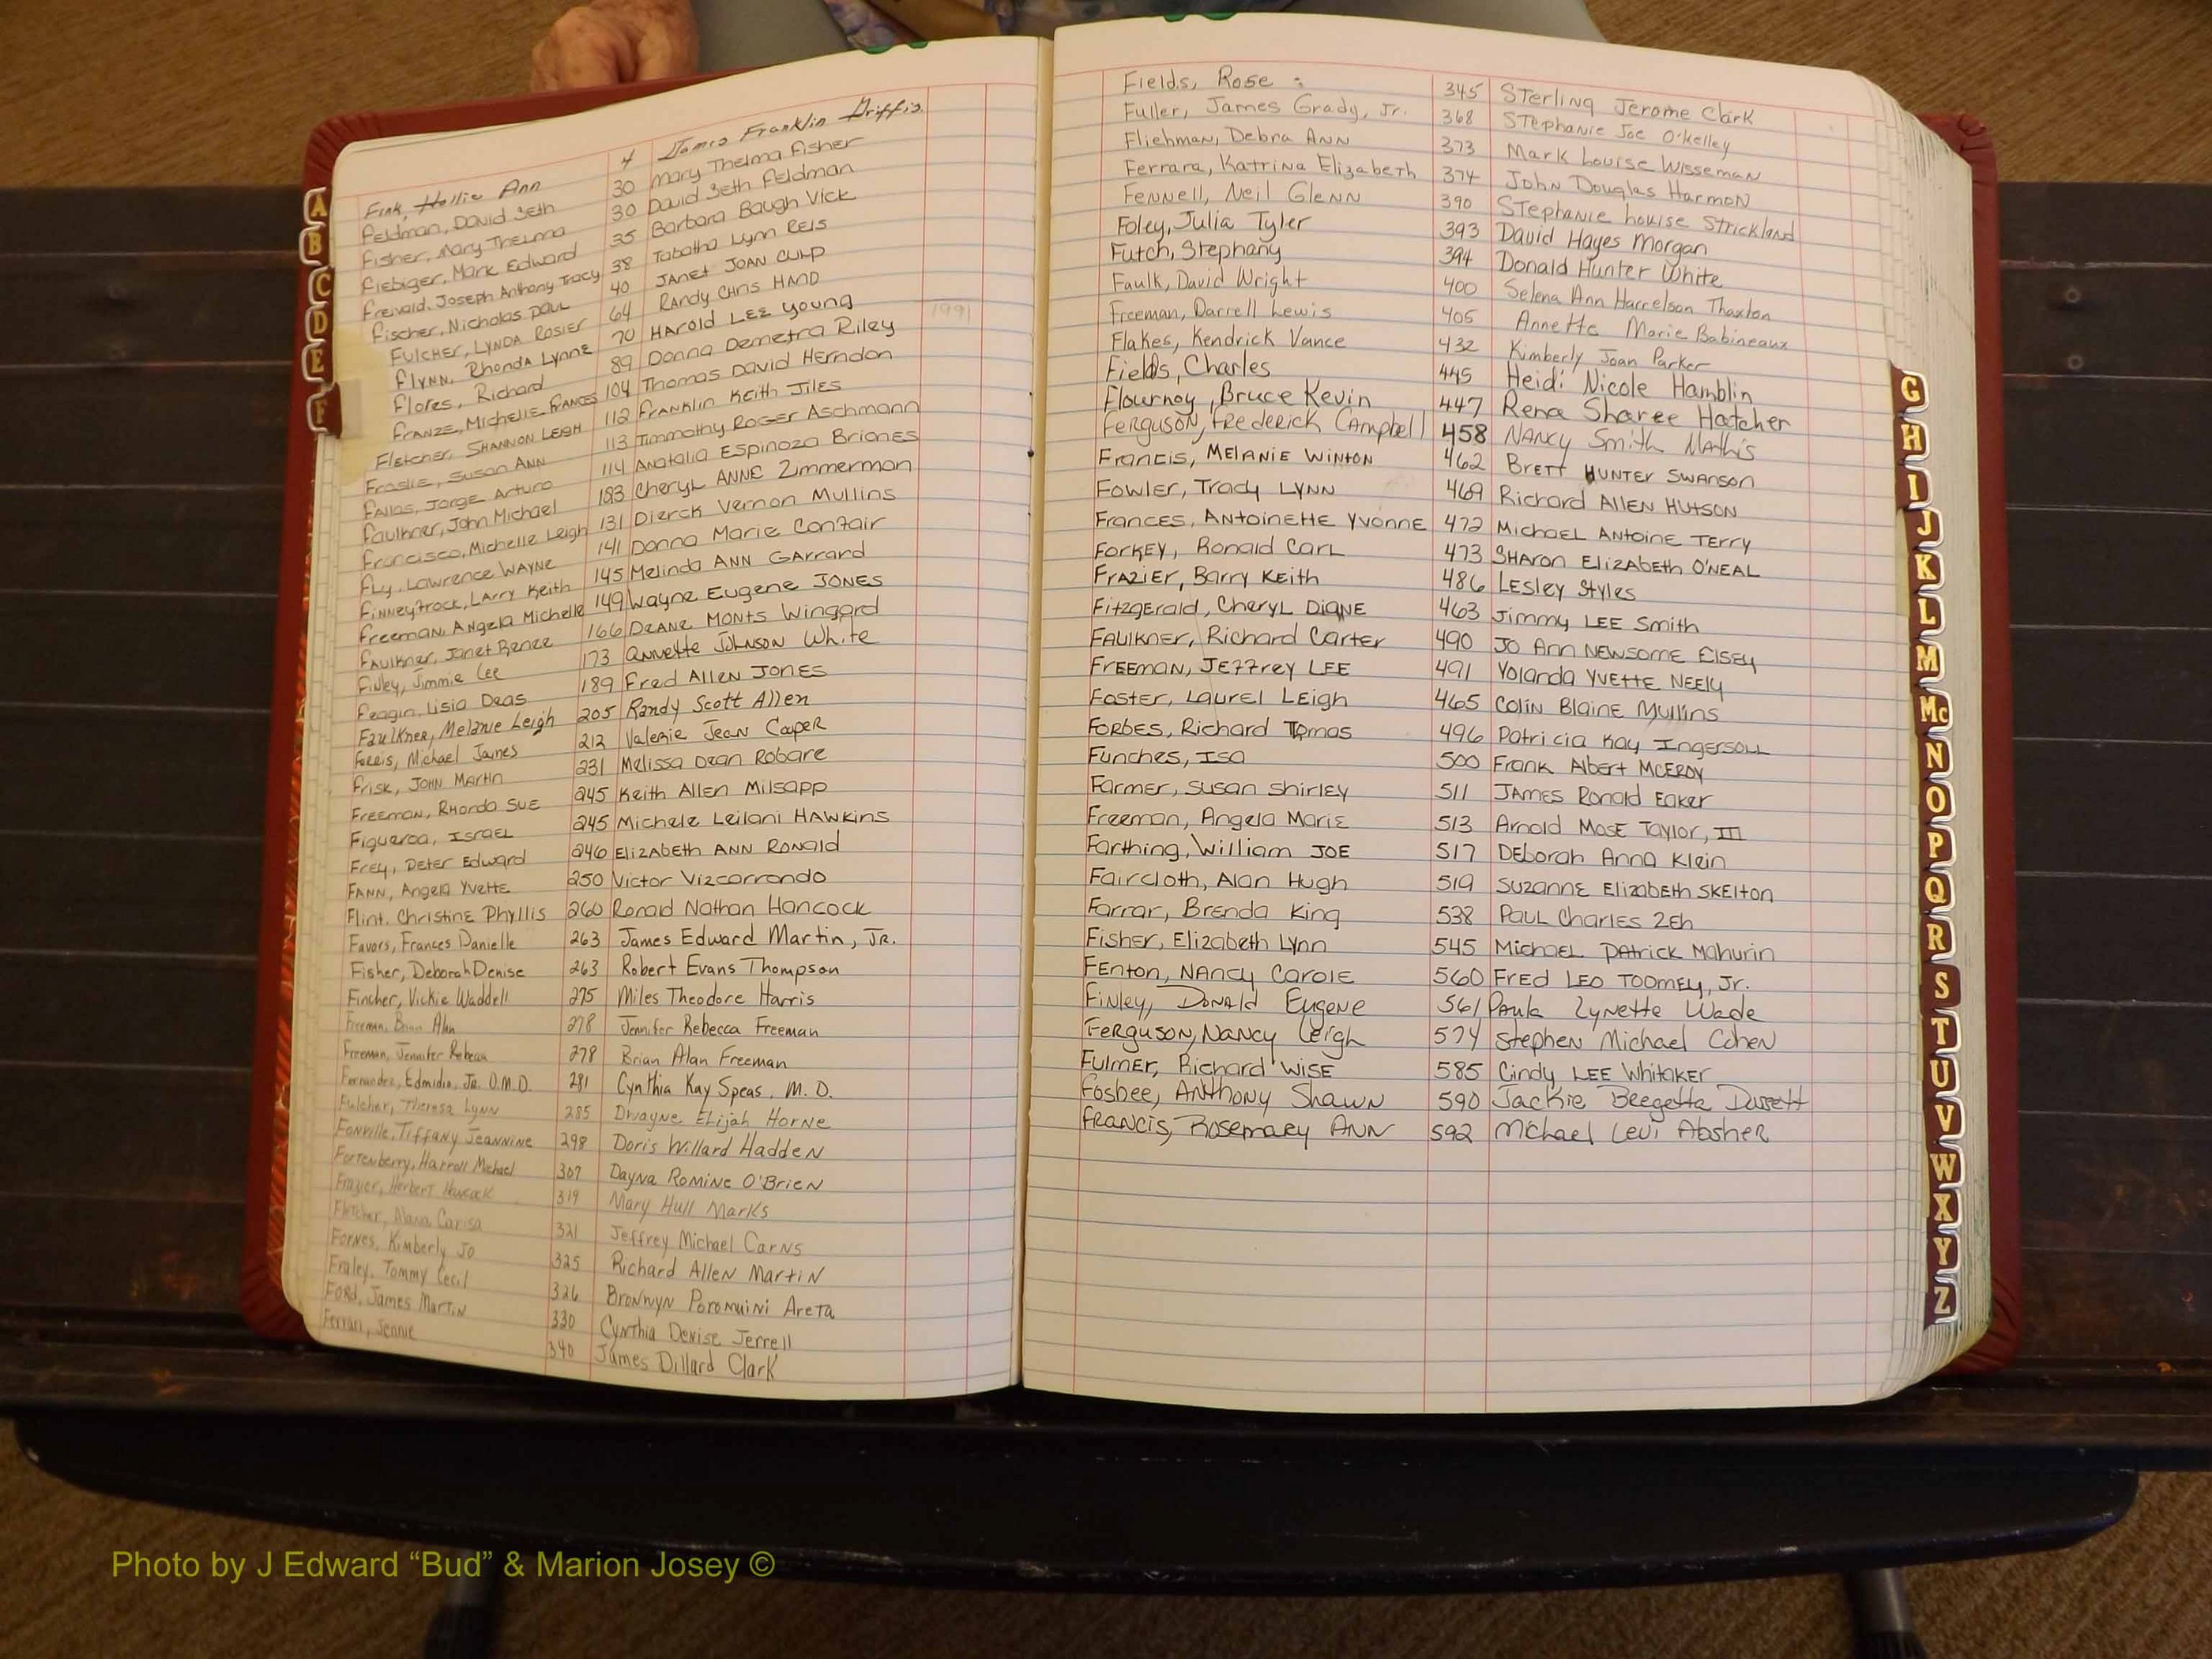 Fink, Hollie Ann 4 James Franklin Griffis
Feldman, David Seth 30 Mary Thelma Fisher
Fisher, Mary Thelma 30 David Seth Feldman
Fiebiger, Mark Edward 35 Barbara Baugh Vick
Freivald, Joseph Anthony Tracy 38 Tabatha Lynn Reis
Fischer, Nicholas Paul 40 Janet Joan Culp
Fulcher, Lynda Rosier 64 Randy Chris Hand
Flynn, Rhonda Lynne 70 Harold Lee Young
Flores, Richard 89 Donna Demetra Riley
Franze, Michelle Frances 104 Thomas David Herndon
Fletcher, Shannon Leigh 112 Franklin Keith Jiles
Fraslie, Susan Ann 113 Timmothy Roger Aschmann
Fallas, Jorge Arturo 114 Anatalia Espinoza Briones
Faulkner, John Michael 183 Cheryl Anne Zimmerman
Francisco, Michelle Leigh 131 Dierck Vernon Mullins
Fly, Lawrence Wayne 141 Donna Marie Confair
Finneyfrock, Larry Keith 145 Melinda Ann Garrard
Freeman, Angela Michelle 149 Wayne Eugene Jones
Faulkner, Janet Renee 166 Deane Monts Wingard
Finley, Jimmie Lee 173 Annette Johnson White
Feagin, Lisia Deas 189 Fred Allen Jones
Faulkner, Melanie Leigh 205 Randy Scott Allen
Ferris, Michael James 212 Valerie Jean Cooper
Frisk, John Martin 231 Melissa Dean Robare
Freeman, Rhonda Sue 245 Keith Allen Milsapp
Figueroa, Israel 245 Michele Leilani Hawkins
Frey, Peter Edward 246 Elizabeth Ann Ronald
Fann, Angela Yvette 250 Victor Vizcorrondo
Flint, Christine Phyllis 260 Ronald Nathan Hancock
Favors, Frances Danielle 263 James Edward Martin, Jr.
Fisher, Deborah Denise 263 Robert Evans Thompson
Fincher, Vickie Waddell 275 Miles Theodore Harris
Freeman, Brian Alan 278 Jennifer Rebecca Freeman
Freeman, Jennifer Rebecca 278 Brian Alan Freeman
Fernandez, Edmidio, Jr. D.M.D. 281 Cynthia Kay Speas, M.D.
Fulcher, Theresa Lynn 285 Dwayne Elijah Horne
Fonville, Tiffany Jeannine 298 Doris Willard Hadden
Fortenberry, Harroll Michael 307 Dayna Romine O'Brien
Frazier, Herbert 319 Mary Hull Marks
Fletcher, Alana Carisa 321 Jeffrey Michael Carns
Fornes, Kimberly Jo 325 Richard Allen Martin
Fraley, Tommy Cecil 326 Bronwyn Poromuini Areta
Ford, James Martin 330 Cynthia Denise Jerrell
Ferrari, Jennie 340 James Dillard Clark
1991
Fields, Rose : 345 Sterling Jerome Clark
Fuller, James Grady, Jr. 368 Stephanie Joe O'Kelley
Fliehman, Debra Ann 373 Mark Louise Wisseman
Ferrara, Katrina Elizabeth 374 John Douglas Harmon
Fennell, Neil Glenn 390 Stephanie Louise Strickland
Foley, Julia Tyler 393 David Hayes Morgan
Futch, Stephany 394 Donald Hunter White
Faulk, David Wright 400 Selena Ann Harrelson Thaxton
Freeman, Darrell Lewis 405 Annette Marie Babineaux
Flakes, Kendrick Vance 432 Kimberly Joan Parker
Fields, Charles 445 Heidi Nicole Hamblin
Flournoy, Bruce Kevin 447 Rena Sharee Hatcher
Ferguson, Frederick Campbell 458 Nancy Smith Mathis
Francis, Melanie Winton 462 Brett Hunter Swanson
Fowler, Tracy Lynn 469 Richard Allen Hutson
Frances, Antoinette Yvonne 472 Michael Antoine Terry
Forkey, Ronald Carl 473 Sharon Elizabeth O'Neal
Frazier, Barry Keith 486 Lesley Styles
Fitzgerald, Cheryl Diane 463 Jimmy Lee Smith
Faulkner, Richard Carter 490 Jo Ann Newsome Elsey
Freeman, Jeffrey Lee 491 Yolanda Yvette Neely
Foster, Laurel Leigh 465 Colin Blaine Mullins
Forbes, Richard Tomas 496 Patricia Kay Ingersoll
Funches, Isa 500 Frank Albert McEroy
Farmer, Susan Shirley 511 James Ronald Eaker
Freeman, Angela Marie 513 Arnold Mose Taylor, III
Farthing, William Joe 517 Deborah Anna Klein
Faircloth, Alan Hugh 519 Suzanne Elizabeth Skelton
Farrar, Brenda King 538 Paul Charles Zeh
Fisher, Elizabeth Lynn 545 Michael Patrick Mahurin
Fenton, Nancy Carole 560 Fred Leo Toomey, Jr.
Finley, Donald Eugene 561 Paula Lynette Wade
Ferguson, Nancy Leigh 574 Stephen Michael Cohen
Fulmer, Richard Wise 585 Cindy Lee Whitaker
Fosbee, Anthony Shawn 590 Jackie Beegette Dussett
Francis, Rosemary Ann 592 Michael Levi Absher
A
B
C
D
E
F
G
H
I
J
K
L
M
Mc
N
O
P
Q
R
S
T
U
V
W
X
Y
Z
Photo by J Edward “Bud” & Marion Josey ©